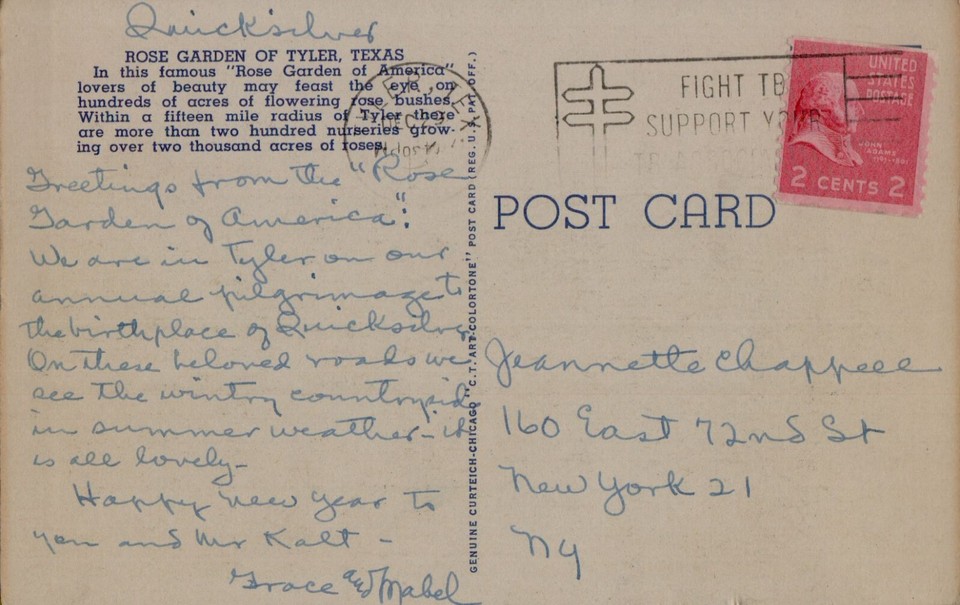 Quicksilver
ROSE GARDEN OF TYLER, TEXAS
In this famous "Rose Garden of America"
lovers of beauty may feast the eye on
hundreds of acres of flowering rose bushes.
Within a fifteen mile radius of Tyler there
are more than two hundred nurseries grow-
ing over two thousand acres of roses.
Greetings from the "Rose
Garden of America":
We are in Tyler on our
annual pilgrimage to
the birthplace of Quicksilver
On these beloved roads we
see the wintry countryside
in summer weather - it
is all lovely -
Happy New Year to
you and Mr Kalt -
Grace and Mabel
GENUINE CURTEICH-CHICAGO "C.T. ART-COLORTONE" POST CARD (REG. U.S. PAT. OFF.)
TYLER, TEX
DEC 29
FIGHT TB
SUPPORT YOUR
UNITED
STATES
POSTAGE
JOHN
ADAMS
2 CENTS 2
POST CARD
Jeannette Chappell
160 East 72nd St
New York 21
NY